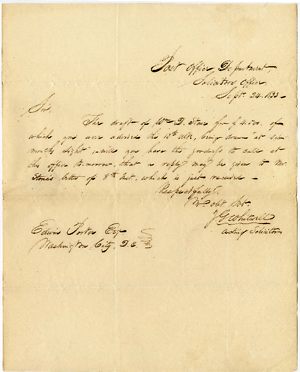 Post Office Department,
Solicitors Office,
Sept. 24. 1833.
Sir,
The draft of Wm D. Stone for
which you was advised the 10th ult. being drawn at six
months sight, will you have the goodness to call at
this office tomorrow, that a reply may be given to Mr
Stone's letter of 8th inst, which is just received.
Respectfully,
Yr Obt Svt.
Edwin Porter Esq
Washington City, D.C.
Acting Solicitor